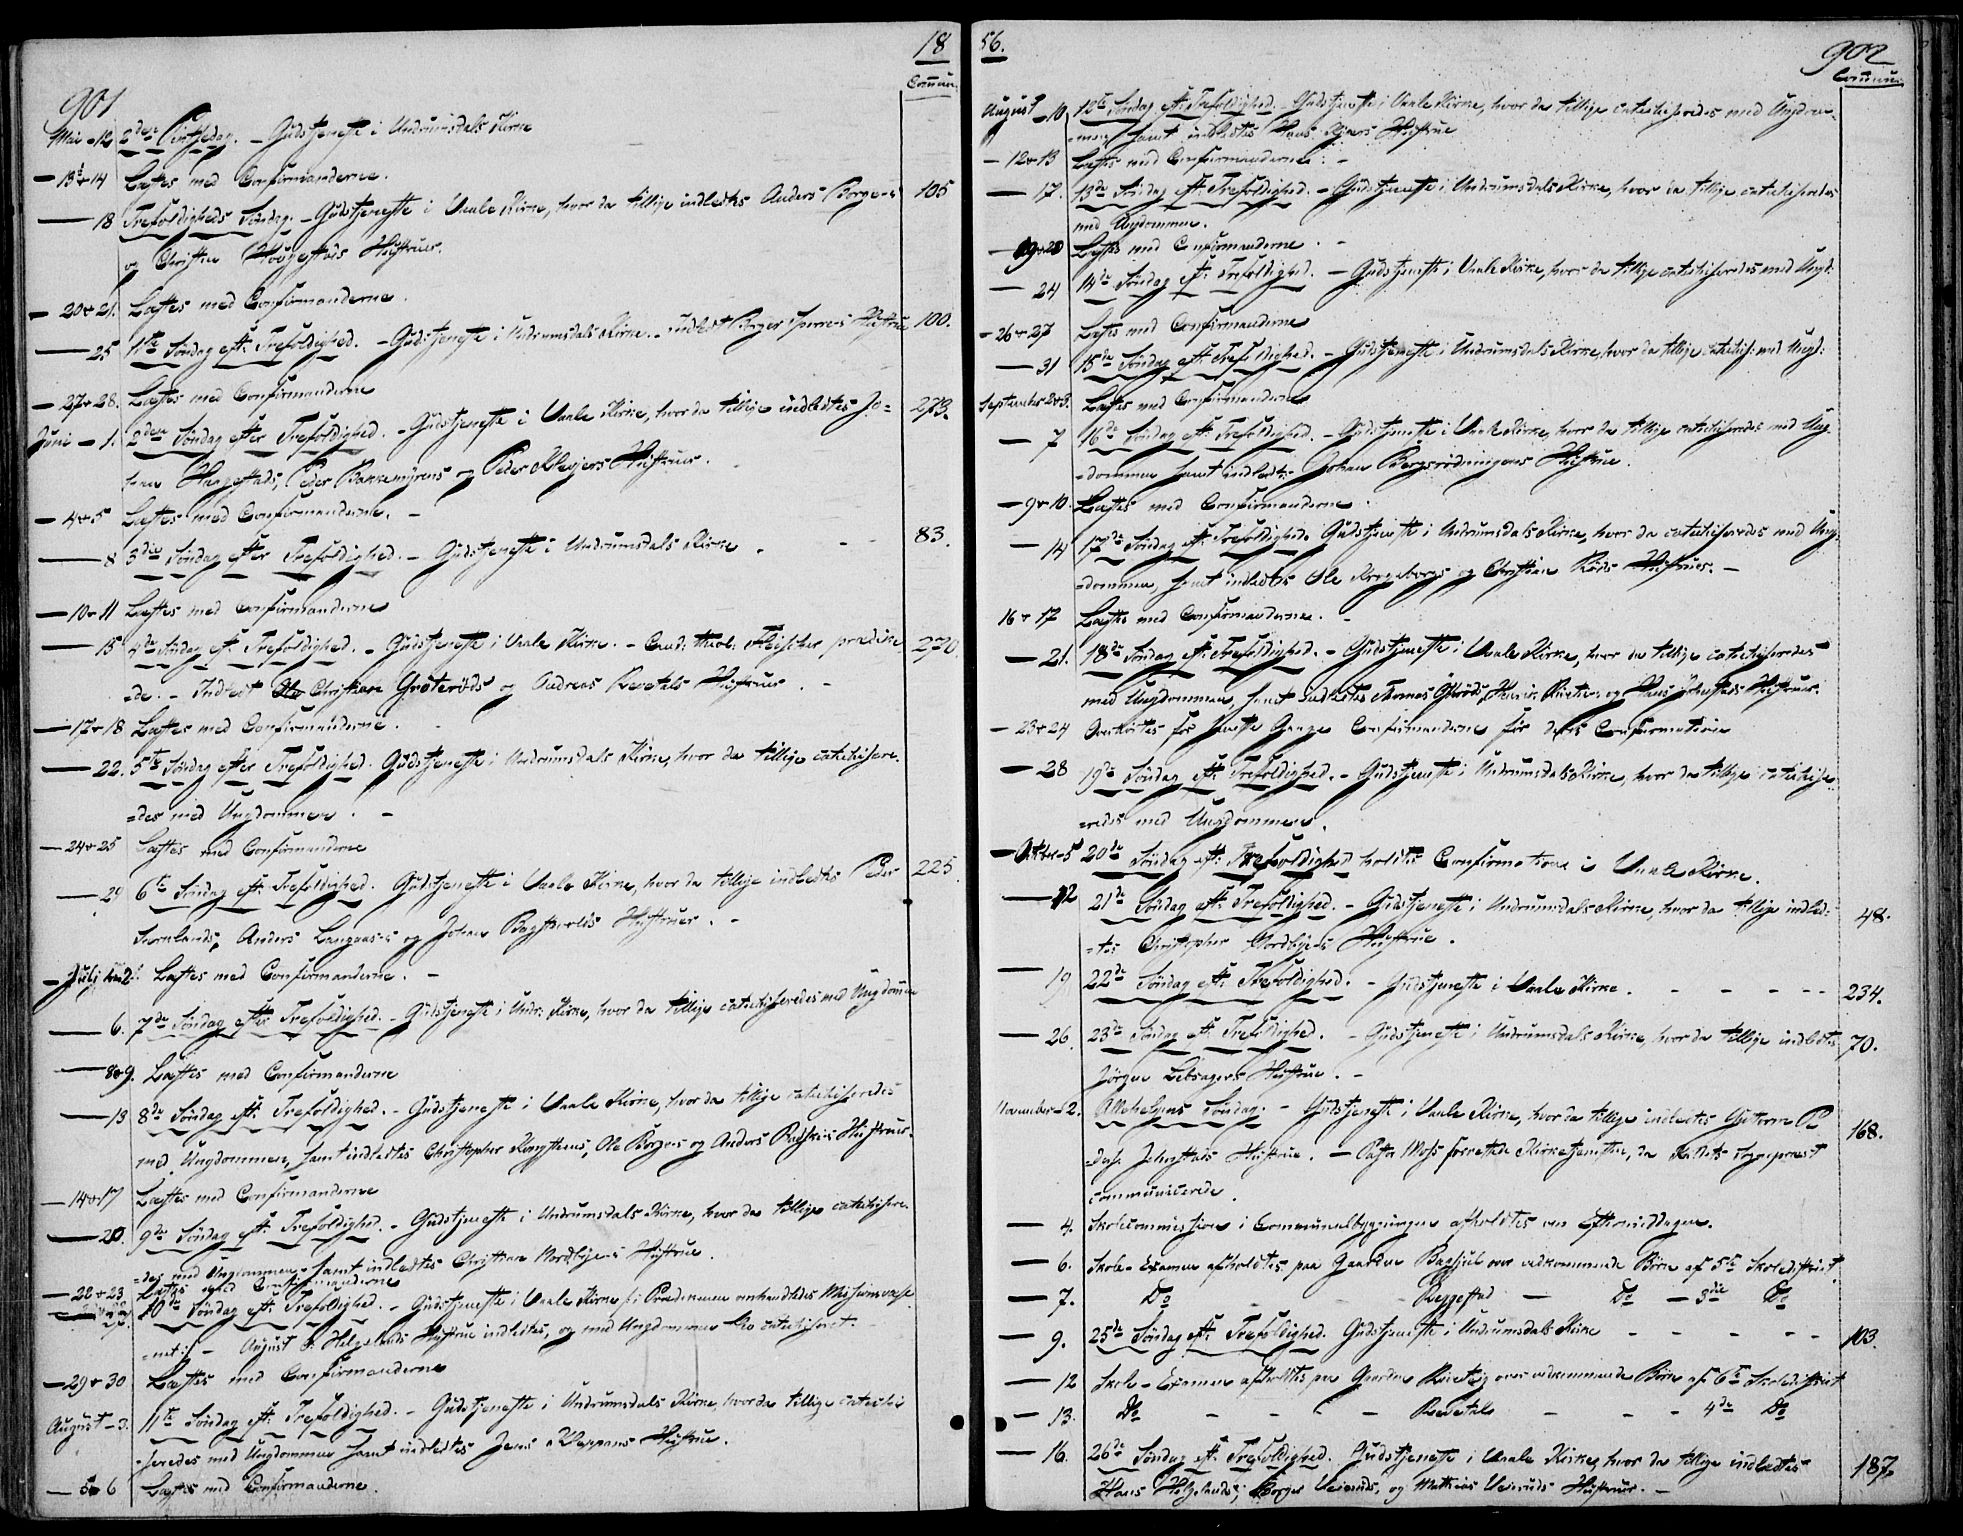 901
18
Commun:
Mai - 12 2den Pintsedag. - Gudstjeneste i Undrumsdals Kirke
- 13 & 14 Læstes med Confirmanderne.
- 18 Trefoldigheds Søndag. - Gudstjeneste i Vaale Kirke, hvor da tillige indledtes Anders Borge-s 105
og Christen Haugestads Hustruer.
- 20 & 21. Læstes med Confirmanderne.
- 25 1ste Søndag eft: Trefoldighed. - Gudstjeneste i Undrumsdals Kirke. - Indledt Borger Sperre-s Hustrue 100.
- 27 & 28. Læstes med Confirmanderne
Juni - 1. 2den Søndag efter Trefoldighed. - Gudstjeneste i Vaale Kirke, hvor da tillige indledtes Jo= 273.
han Haugestads, Peder Bakkemyrens og Peder Klevjers Hustruer.
- 4 & 5 Læstes med Confirmanderne. -
- 8 3die Søndag efter Trefoldighed. - Gudstjeneste i Undrumsdals Kirke. - - 83.
- 10 & 11 Læstes med Confirmanderne
- 15 4de Søndag eft: Trefoldighed. - Gudstjeneste i Vaale Kirke. - Cand: theol: Fleischer prædike 270.
=de. - Indledt Christian Grøterøds og Andreas Revetals Hustruer. -
- 17 & 18 Læstes med Confirmanderne.
- 22. 5te Søndag efter Trefoldighed. Gudstjeneste i Undrumsdals Kirke, hvor da tillige catechisere=
=des med Ungdommen. -
- 24 & 25 Læstes med Confirmanderne
- 29 6te Søndag eft: Trefoldighed. Gudstjeneste i Vaale Kirke, hvor da tillige indledtes Peder 225.
Anders Langaas-s og Johan Hustruer. -
- Julj 1 & 2. Læstes med Confirmanderne. -
- 6. 7de Søndag efter Trefoldighed. - Gudstjeneste i Undr: Kirke, hvor da tillige catechiseredes med Ungdommen
- 8 & 9. Læstes med Confirmanderne
- 13 8de Søndag eft: Trefoldighed. - Gudstjeneste i Vaale Kirke, hvor da tillige catechiseredes
med Ungdommen, samt indledtes Christopher Ole Borge-s og Anders Hustruer.
- 14 & 17 Læstes med Confirmanderne
- 20. 9de Søndag eft: Trefoldighed. - Gudstjeneste i Undrumsdals Kirke, hvor da tillige catechisere=
=des med Ungdommen samt indledtes Christian Nordbye-s Hustrue.
- 22 & 23 Læstes med Confirmanderne
- 27. 10de Søndag eft: Trefoldighed. - Gudstjeneste i Vaale Kirke /: i Prædikenen omhandledes Missionsvæse
=net:/ - August P. Helgelands Hustrue indledtes, og med Ungdommen blev catechiseret.
- 29 & 30 Læstes med Confirmanderne
August - 3. 11te Søndag eft: Trefoldighed. - Gudstjeneste i Undrumsdals Kirke, hvor da tillige catechi
=seredes med Ungdommen samt indledtes Jens Kleppans Hustrue.
- 5 & 6 Læstes med Confirmanderne.
56.
902
Commun:
August - 10 12te Søndag eft: Trefoldighed. - Gudstjeneste i Vaale Kirke, hvor da tillige catechiseredes med Ungdom=
=men samt indledtes Hans Hustrue
- 12 & 13 Læstes med Confirmanderne. -
- 17. 13de Søndag eft: Trefoldighed. - Gudstjeneste i Undrumsdals Kirke, hvor da tillige catechiseredes
med Ungdommen.
- 19 & 20 Læstes med Confirmanderne. -
- 24 14de Søndag eft: Trefoldighed. - Gudstjeneste i Vaale Kirke, hvor da tillige catechiseredes med Ungd:
- 26 & 27 Læstes med Confirmanderne
- 31 15de Søndag eft: Trefoldighed. - Gudstjeneste i Undrumsdals Kirke, hvor da tillige catechis: med Ungd:
September 2 & 3. Læstes med Confirmanderne
- 7 16de Søndag eft: Trefoldighed. - Gudstjeneste i Vaale Kirke, hvor da tillige catechiseredes med Ung
=dommen samt indledtes Johan Bergsrødningens Hustrue.
- 9 & 10. Læstes med Confirmanderne.
- 14 17de Søndag eft: Trefoldighed. Gudstjeneste i Undrumsdals Kirke, hvor da catechiseredes med Ung=
=dommen, samt indledtes Ole og Christian Røds Hustruer. -
16 & 17 Læstes med Confirmanderne. -
- 21. 18de Søndag eft: Trefoldighed. - Gudstjeneste i Vaale Kirke, hvor da tillige catechiseredes
med Ungdommen, samt indledtes og Hans Hustruer.
- 23 & 24 Overhørtes for sidste Gange Confirmanderne før deres Confirmation
- 28 19de Søndag eft: Trefoldighed. - Gudstjeneste i Undrumsdals Kirke, hvor da tillige catechise=
=redes med Ungdommen.
- Oktbr - 5 20de Søndag eft: Trefoldighed holdtes Confirmation i Vaale Kirke.
- 12 21de Søndag eft: Trefoldighed. - Gudstjeneste i Undrumsdals Kirke, hvor da tillige indled= 48.
=tes Christopher Nordbye-s Hustrue.
- 19 22de Søndag eft: Trefoldighed. - Gudstjeneste i Vaale Kirke. - - - - - 234.
- 26 23de Søndag eft: Trefoldighed. - Gudstjeneste i Undrumsdals Kirke, hvor da tillige indledtes 70.
Jørgen Lebsagers Hustrue. -
November - 2. Allehelgens Søndag. - Gudstjeneste i Vaale Kirke, hvor da tillige indledtes Guttorm Pe 168.
=ders. Hustrue. - Pastor Moss forrettede Kirketjenesten, da Stedets Sognepræst
communicerede.
- 4. Skolecommission i Communalbygningen afholdtes om Eftermiddagen.
- 6. Skole-Examen afholdtes paa Gaarden Bagsjul over vedkommende Børn af 5te Skoledistrict
- 7. Do Reggestad - Do - 3die Do
- 9. 25de Søndag eft: Trefoldighed. Gudstjeneste i Undrumsdals Kirke - - - - - 103.
- 12 Skole-Examen afholdtes paa Gaarden over vedkommende Børn af 6te Skoledistrict
- 13. Do - - - Revetals - - - 4de Do
- 16. 26de Søndag eft: Trefoldighed. Gudstjeneste i Vaale Kirke, hvor da tillige indledtes 187.
Hans Helgelands, Borger og Mathias Hustruer. -